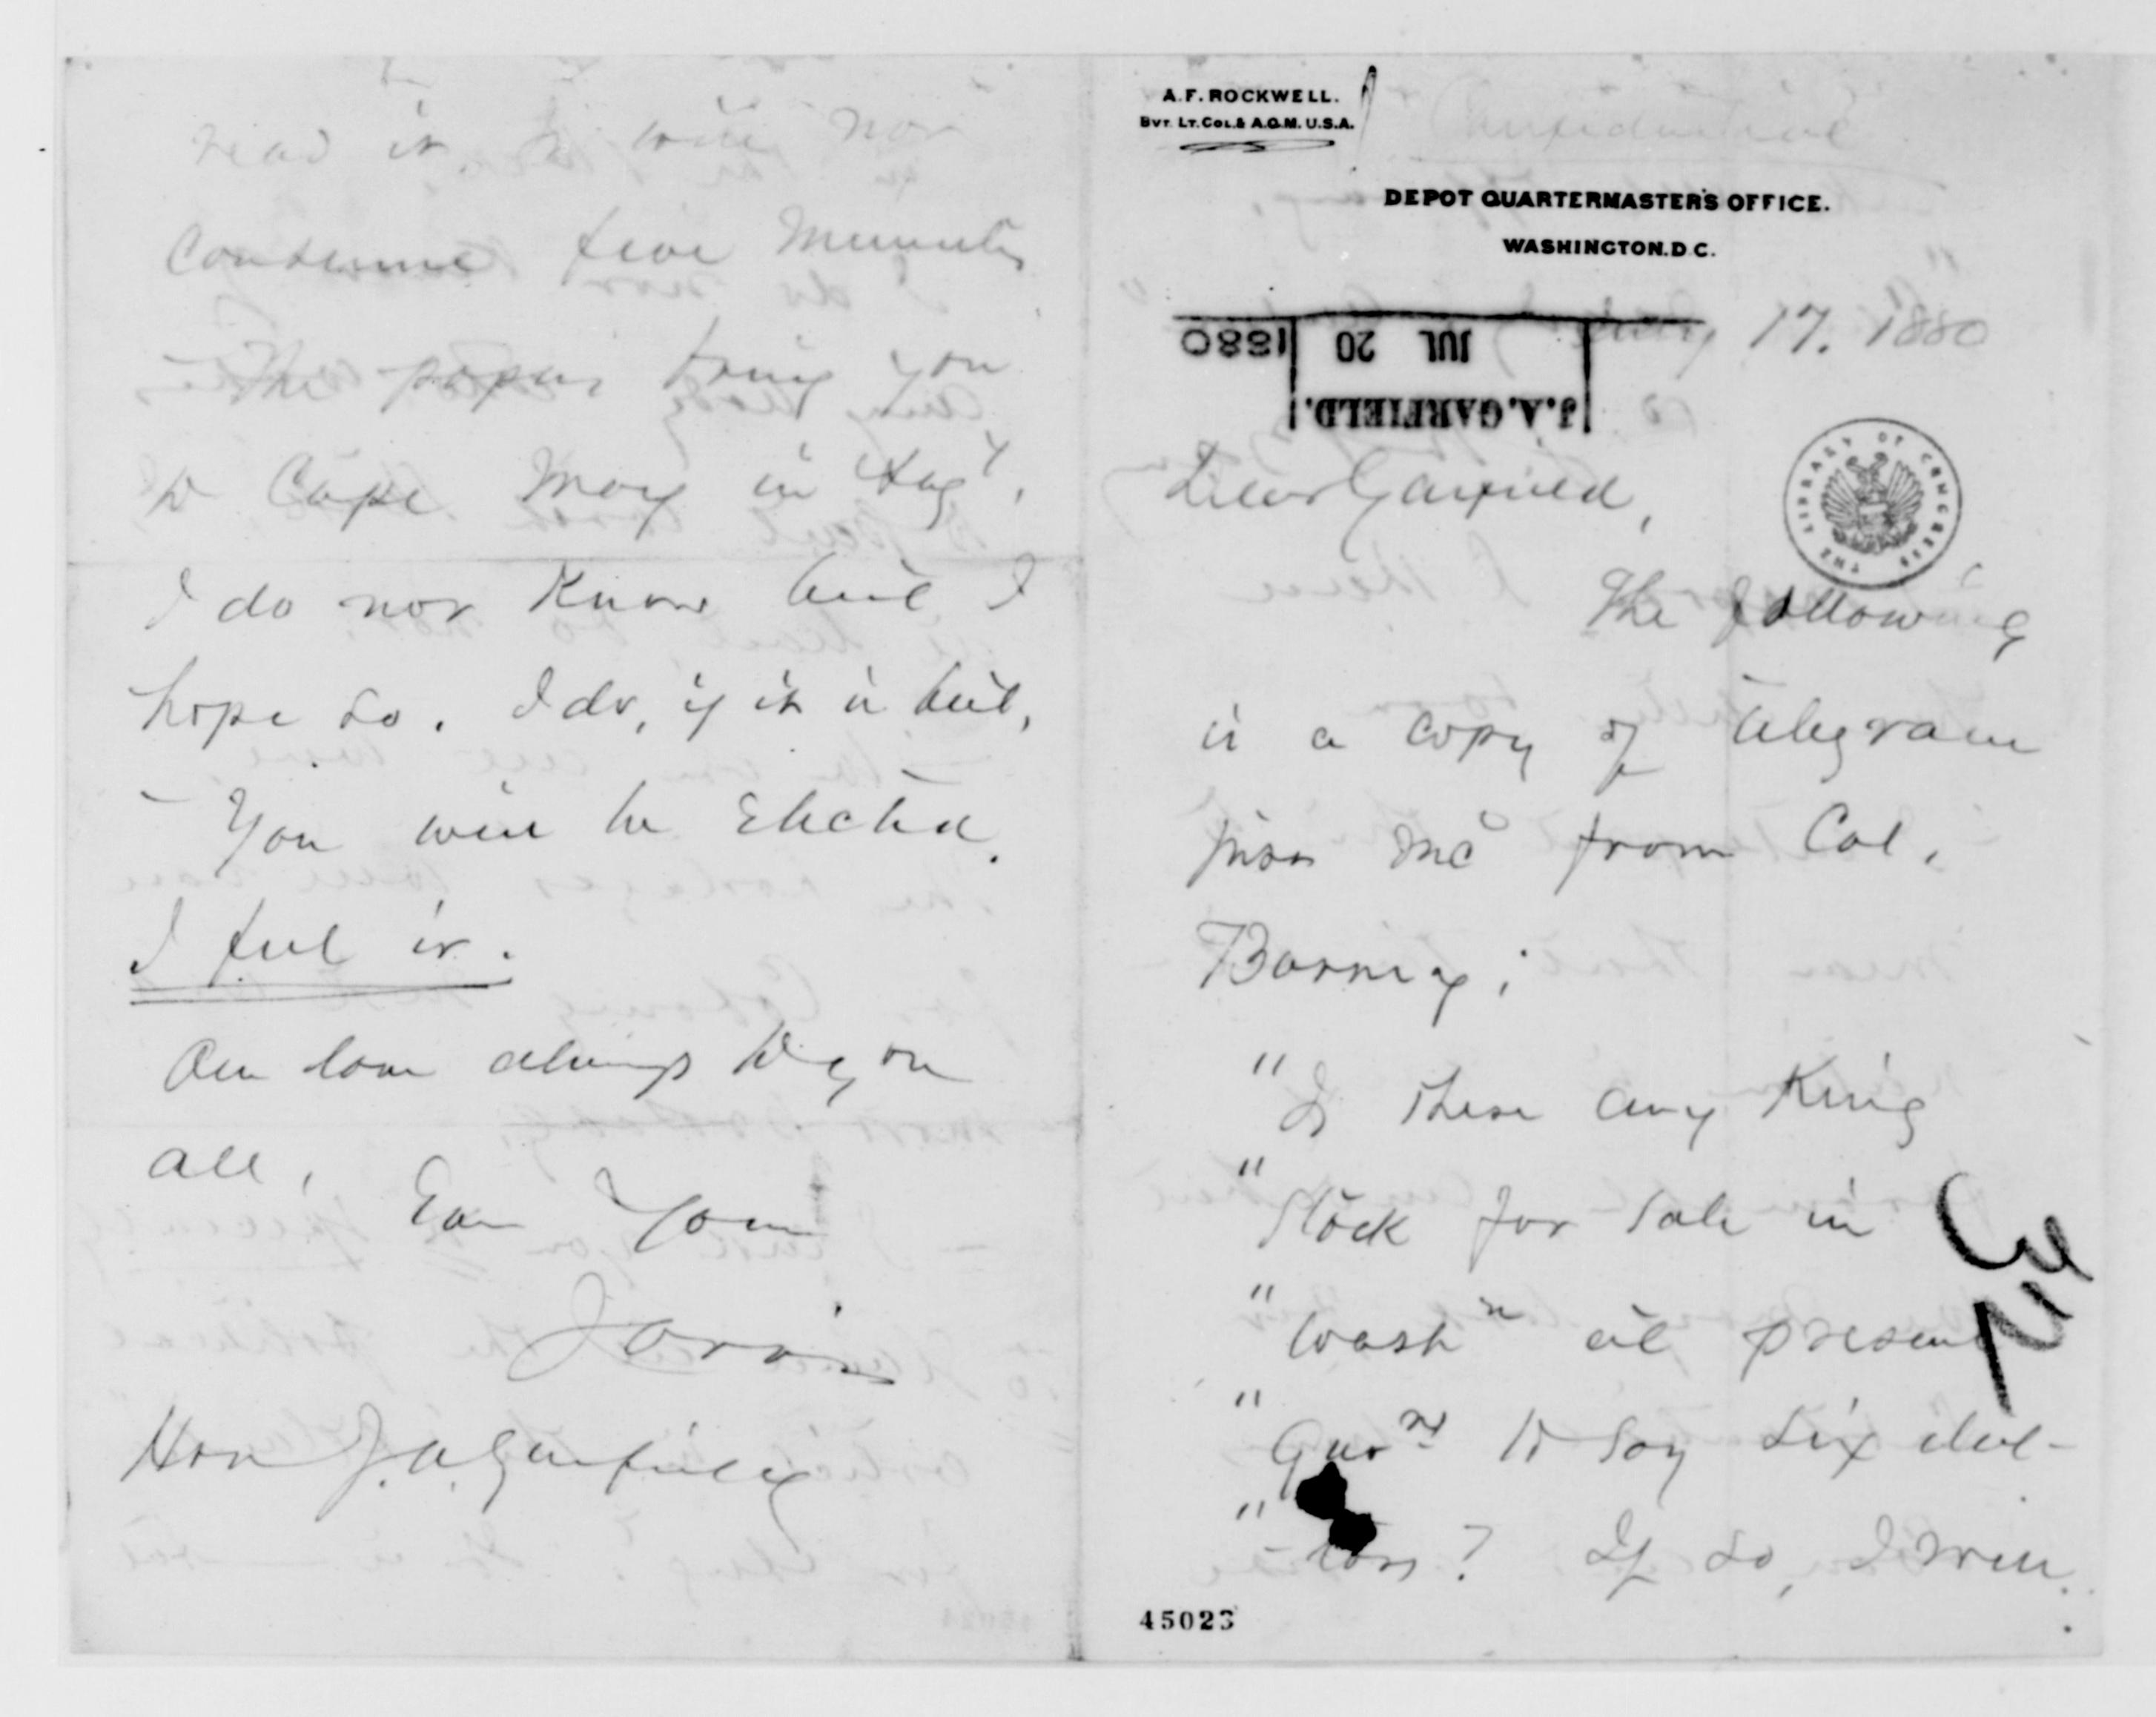 A.F. ROCKWELL.
BVT. LT. COL. & A.Q.M. U.S.A.
Confidential
DEPOT QUARTERMASTER'S OFFICE.
WASHINGTON. D.C.
July 17. 1880
J.A. GARFIELD.
JUL 20 1880
THE LIBRARY OF CONGRESS
Dear Garfield,
The following
is a copy of telegram
just rec'd from Col.
Barney;
"Is there any King
"Stock for sale in
"Washn at present
"Guard to say six dol-
"lars? If so, I will
45023
read it. It will not
consume five minutes
– The papers bring you
to Cape May in Augt.
I do not know but I
hope so. I do, if it is best,
– You will be Elected.
I feel it.
Our love always to you
all,
Ever Yours
Hon J.A. Garfield